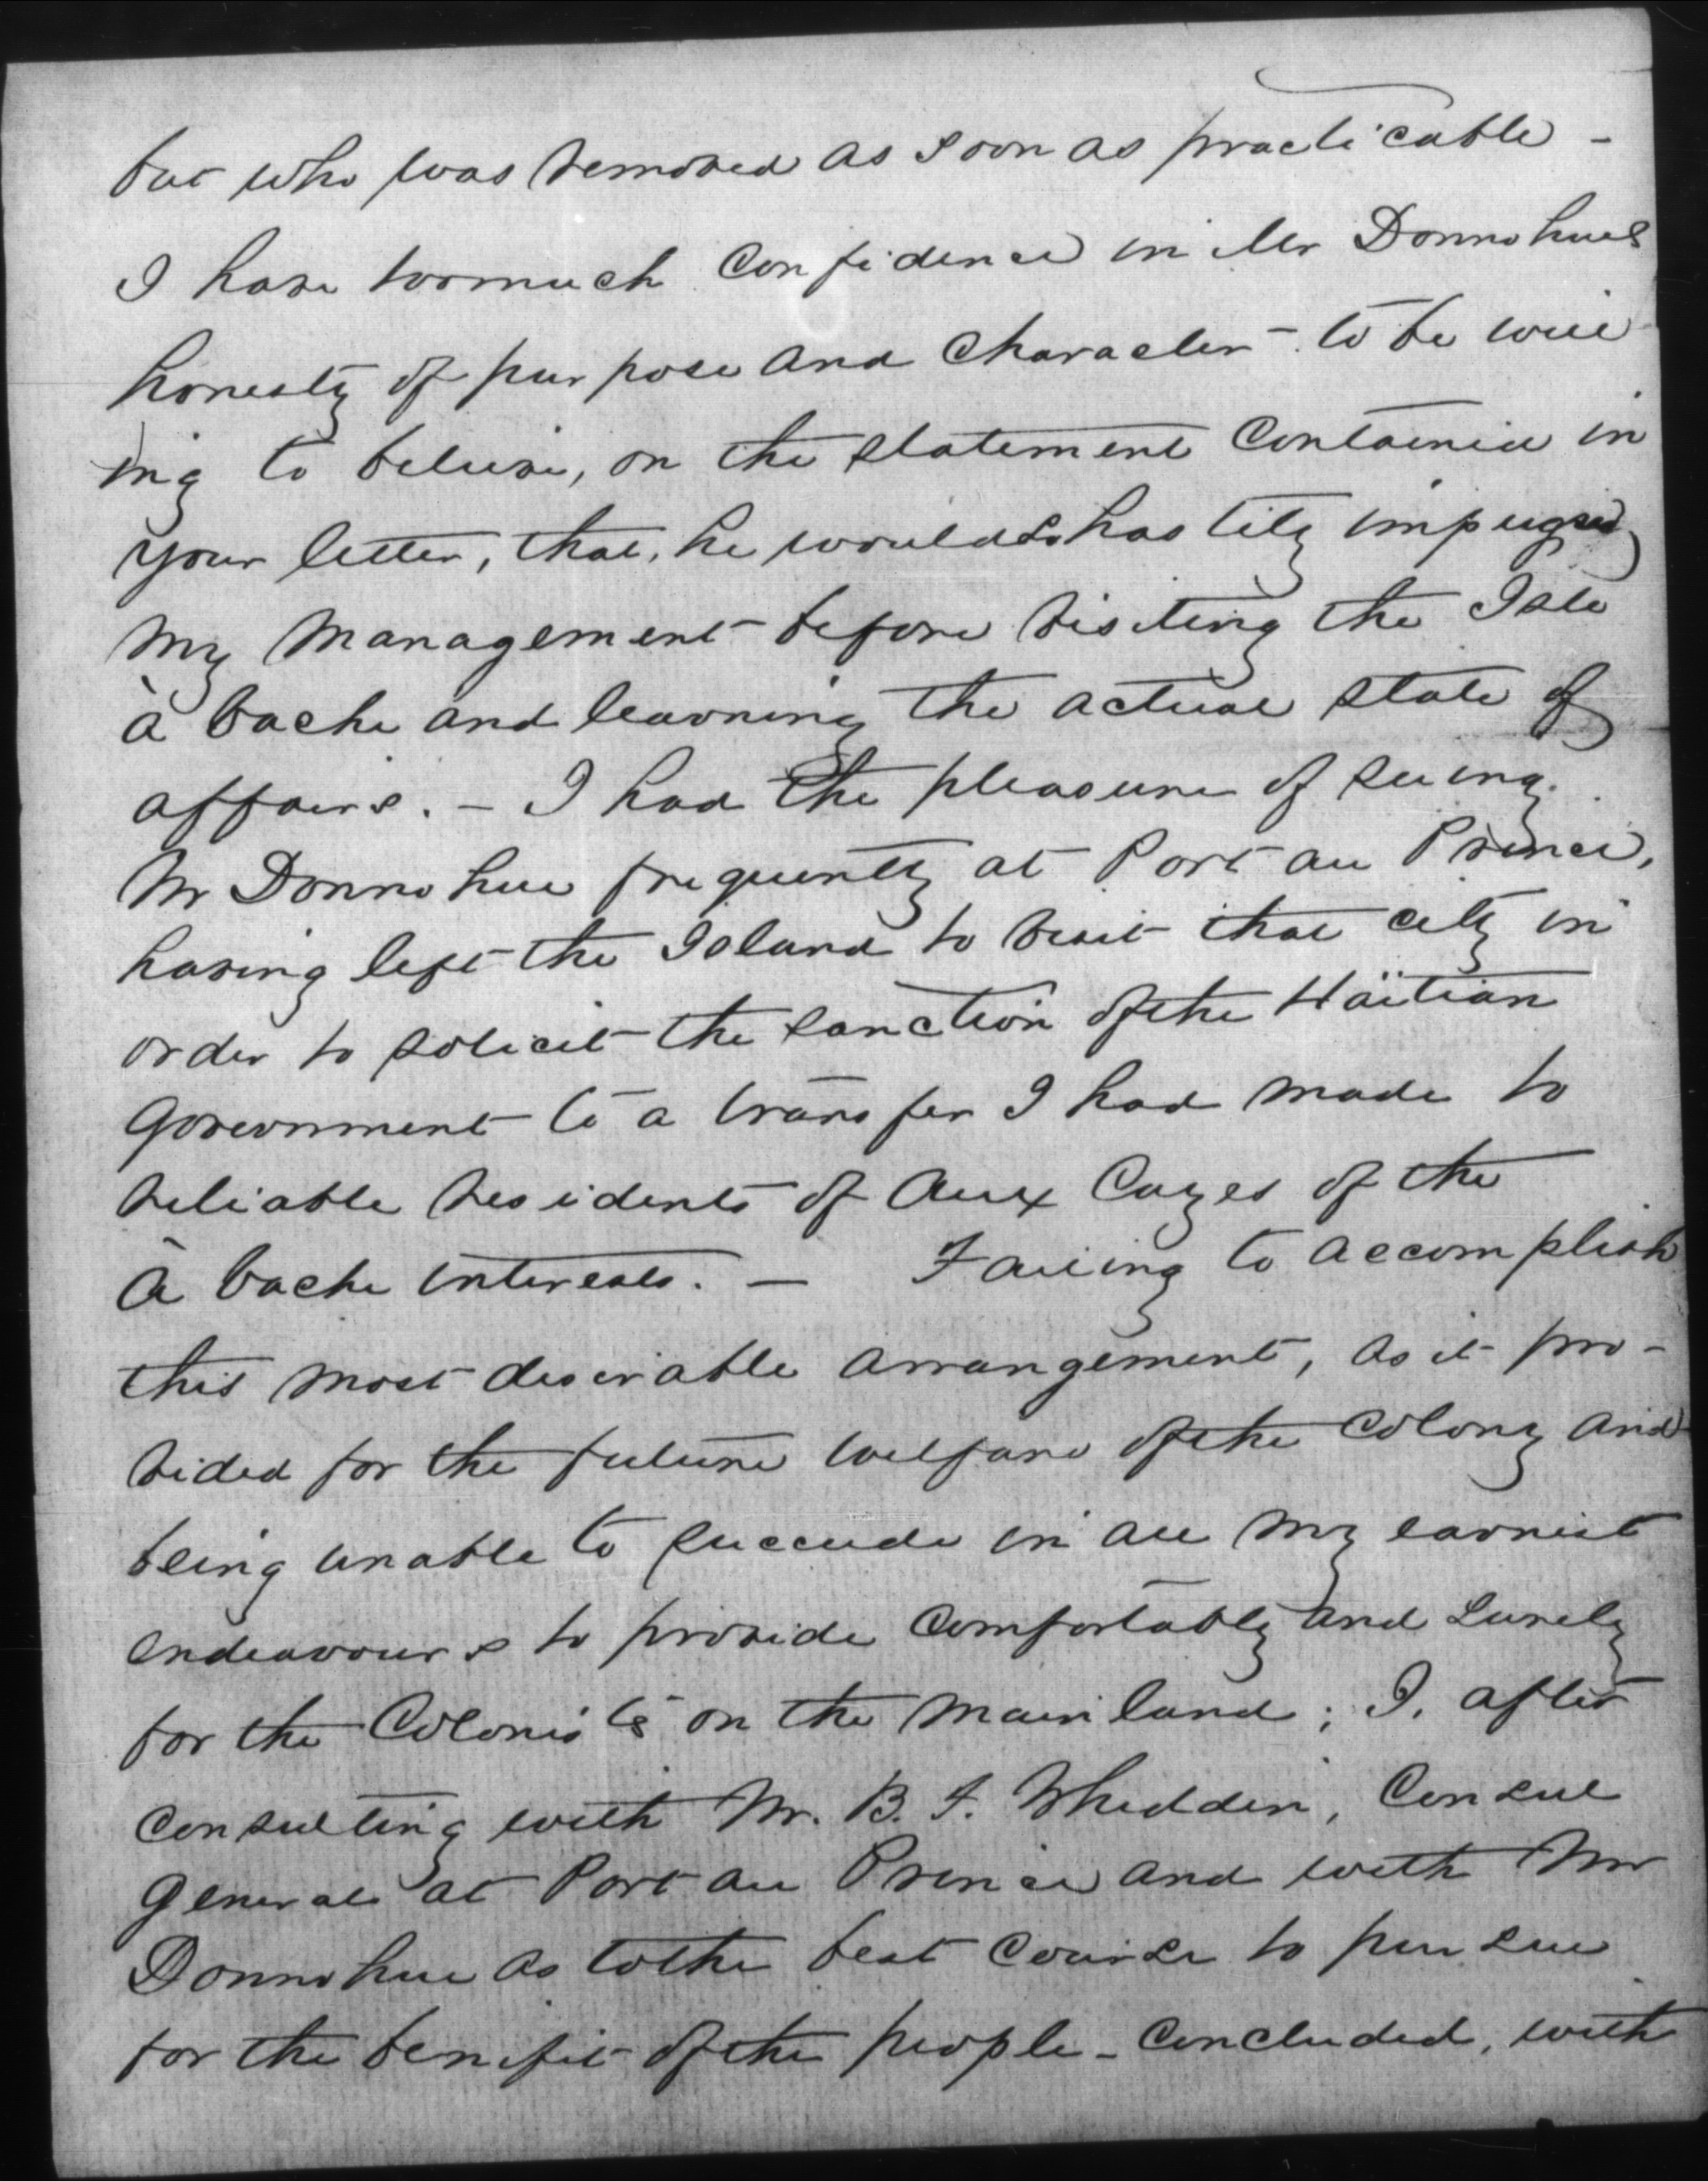 but who was removed as soon as practicable -
I have too much confidence in Mr Donnohues
honesty of purpose and character - to be will
ing to believe, on the statement contained in
your letter, that, he would so hastily impugn
my management before visiting the Isle
à Vache and learning the actual state of
affairs. - I had the pleasure of seeing
Mr Donnohue frequently at Port au Prince,
having left the Island to visit that city in
order to solicit the sanction of the Haïtian
Government to a transfer I had made to
reliable residents of Aux Cayes of the
à Vache interests. - Failing to accomplish
this most desirable arrangement, as it pro-
vided for the future welfare of the colony and
being unable to succeede in all my earnest
endeavours to provide comfortably and surely
for the Colonists on the mainland; I, after
consulting with Mr. B. F. Whidden, Consul
General at Port au Prince and with Mr
Donnohue as to the best course to pursue
for the benefit of the people - concluded, with